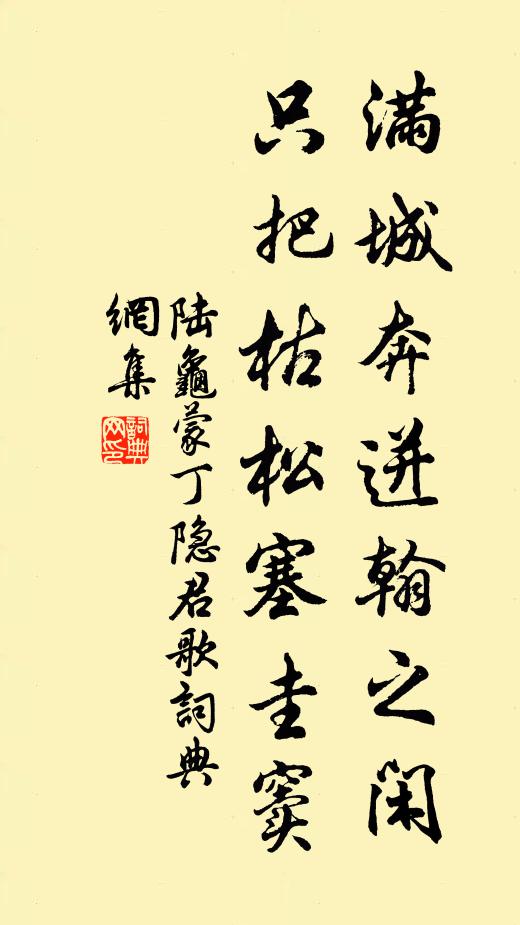 满城奔迸翰之闲
只把枯松塞圭窦
陆龜蒙丁隐君歌詞典
網集
詞典网印